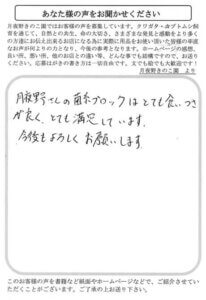 あなた様の声をお聞かせください
月夜野きのこ園ではお客様の声を募集しています。クワガタ・カブトムシ飼
育を通じて、自然との共生、命の大切さ、さまざまな発見と感動をより多く
の方達にお伝え出来るお店になる為に実際に用品をお使い頂いた皆様の率直
なお声が何よりの力となり、今後の参考となります。ホームページの感想、
良い所、悪い所、他のお店との違い等、どんな事でも結構ですので、お送り
ください。応募はがきの書き方は一切自由です。文でも絵でも大歓迎です！
月夜野きのこ園 より
月夜野さんの菌糸ブロックはとても食いつき
が良く、とても満足しています。
今後もよろしくお願いします。
このお客様の声を書籍など紙面やホームページなどで、ご紹介させてい
ただくことがございます。ご了承の上お送り下さい。